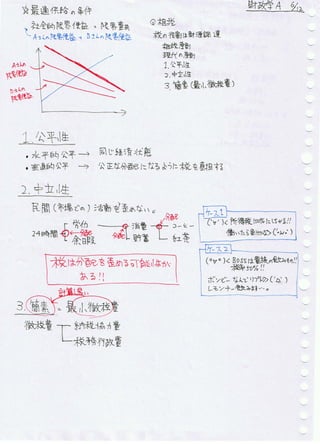 財政学A 6/12
☆最適供給の条件
社会的限界便益 = 限界費用
Aさんの限界便益 + Bさんの限界便益
Aさんの限界便益
Bさんの限界便益
◎租税
税の役割は財源調達
租税原則
現代の原則
1.公平性
2.中立性
3.簡素(最小徴税費)
1.公平性
・水平的公平 → 同じ経済状態
・垂直的公平 → 公正な分配になるように税を負担する
2.中立性
民間(市場での)活動を歪めない。
24時間
労働
余暇
分配
消費
貯蓄
分配
コーヒー
紅茶
分配
ケース1
所得税100%にするよ!!
ケース2
BOSSは最強の飲みもの!!
税率50%!!
レモンティー飲みます…。
税は分配を歪める可能性が
ある!!
計算しやすい
3.簡素 = 最小徴税費
徴税費
納税協力費
税務行政費